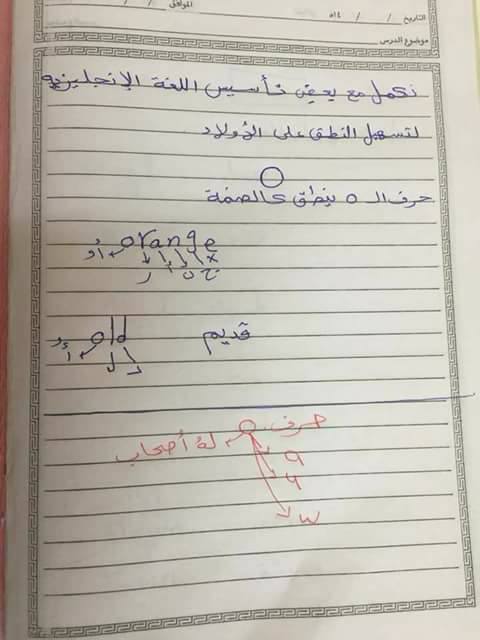 التاريخ / / ١٤هـ الموافق / /
موضوع الدرس
نكمل مع بعض تأسيس اللغة الإنجليزيه
لتسهيل النطق على الأولاد
O
حرف الـ o ينطق كالضمة
orange
أو ر أ ن ج x
old قديم
أو ل د
حرف o له أصحاب
a
u
w